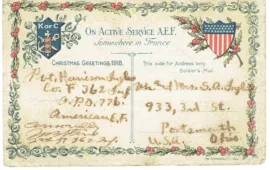 K of C
ON ACTIVE SERVICE A.E.F.
Somewhere in France
CHRISTMAS GREETINGS, 1918.
This side for Address only
Soldier's Mail.
Pvt. Harrison Ingles
Co. F 362 Inf
A.P.O. 776.
American E.F.
Mr. & Mrs. S.A. Ingles
933, 3rd St.
Portsmouth
Ohio
U.S.A.